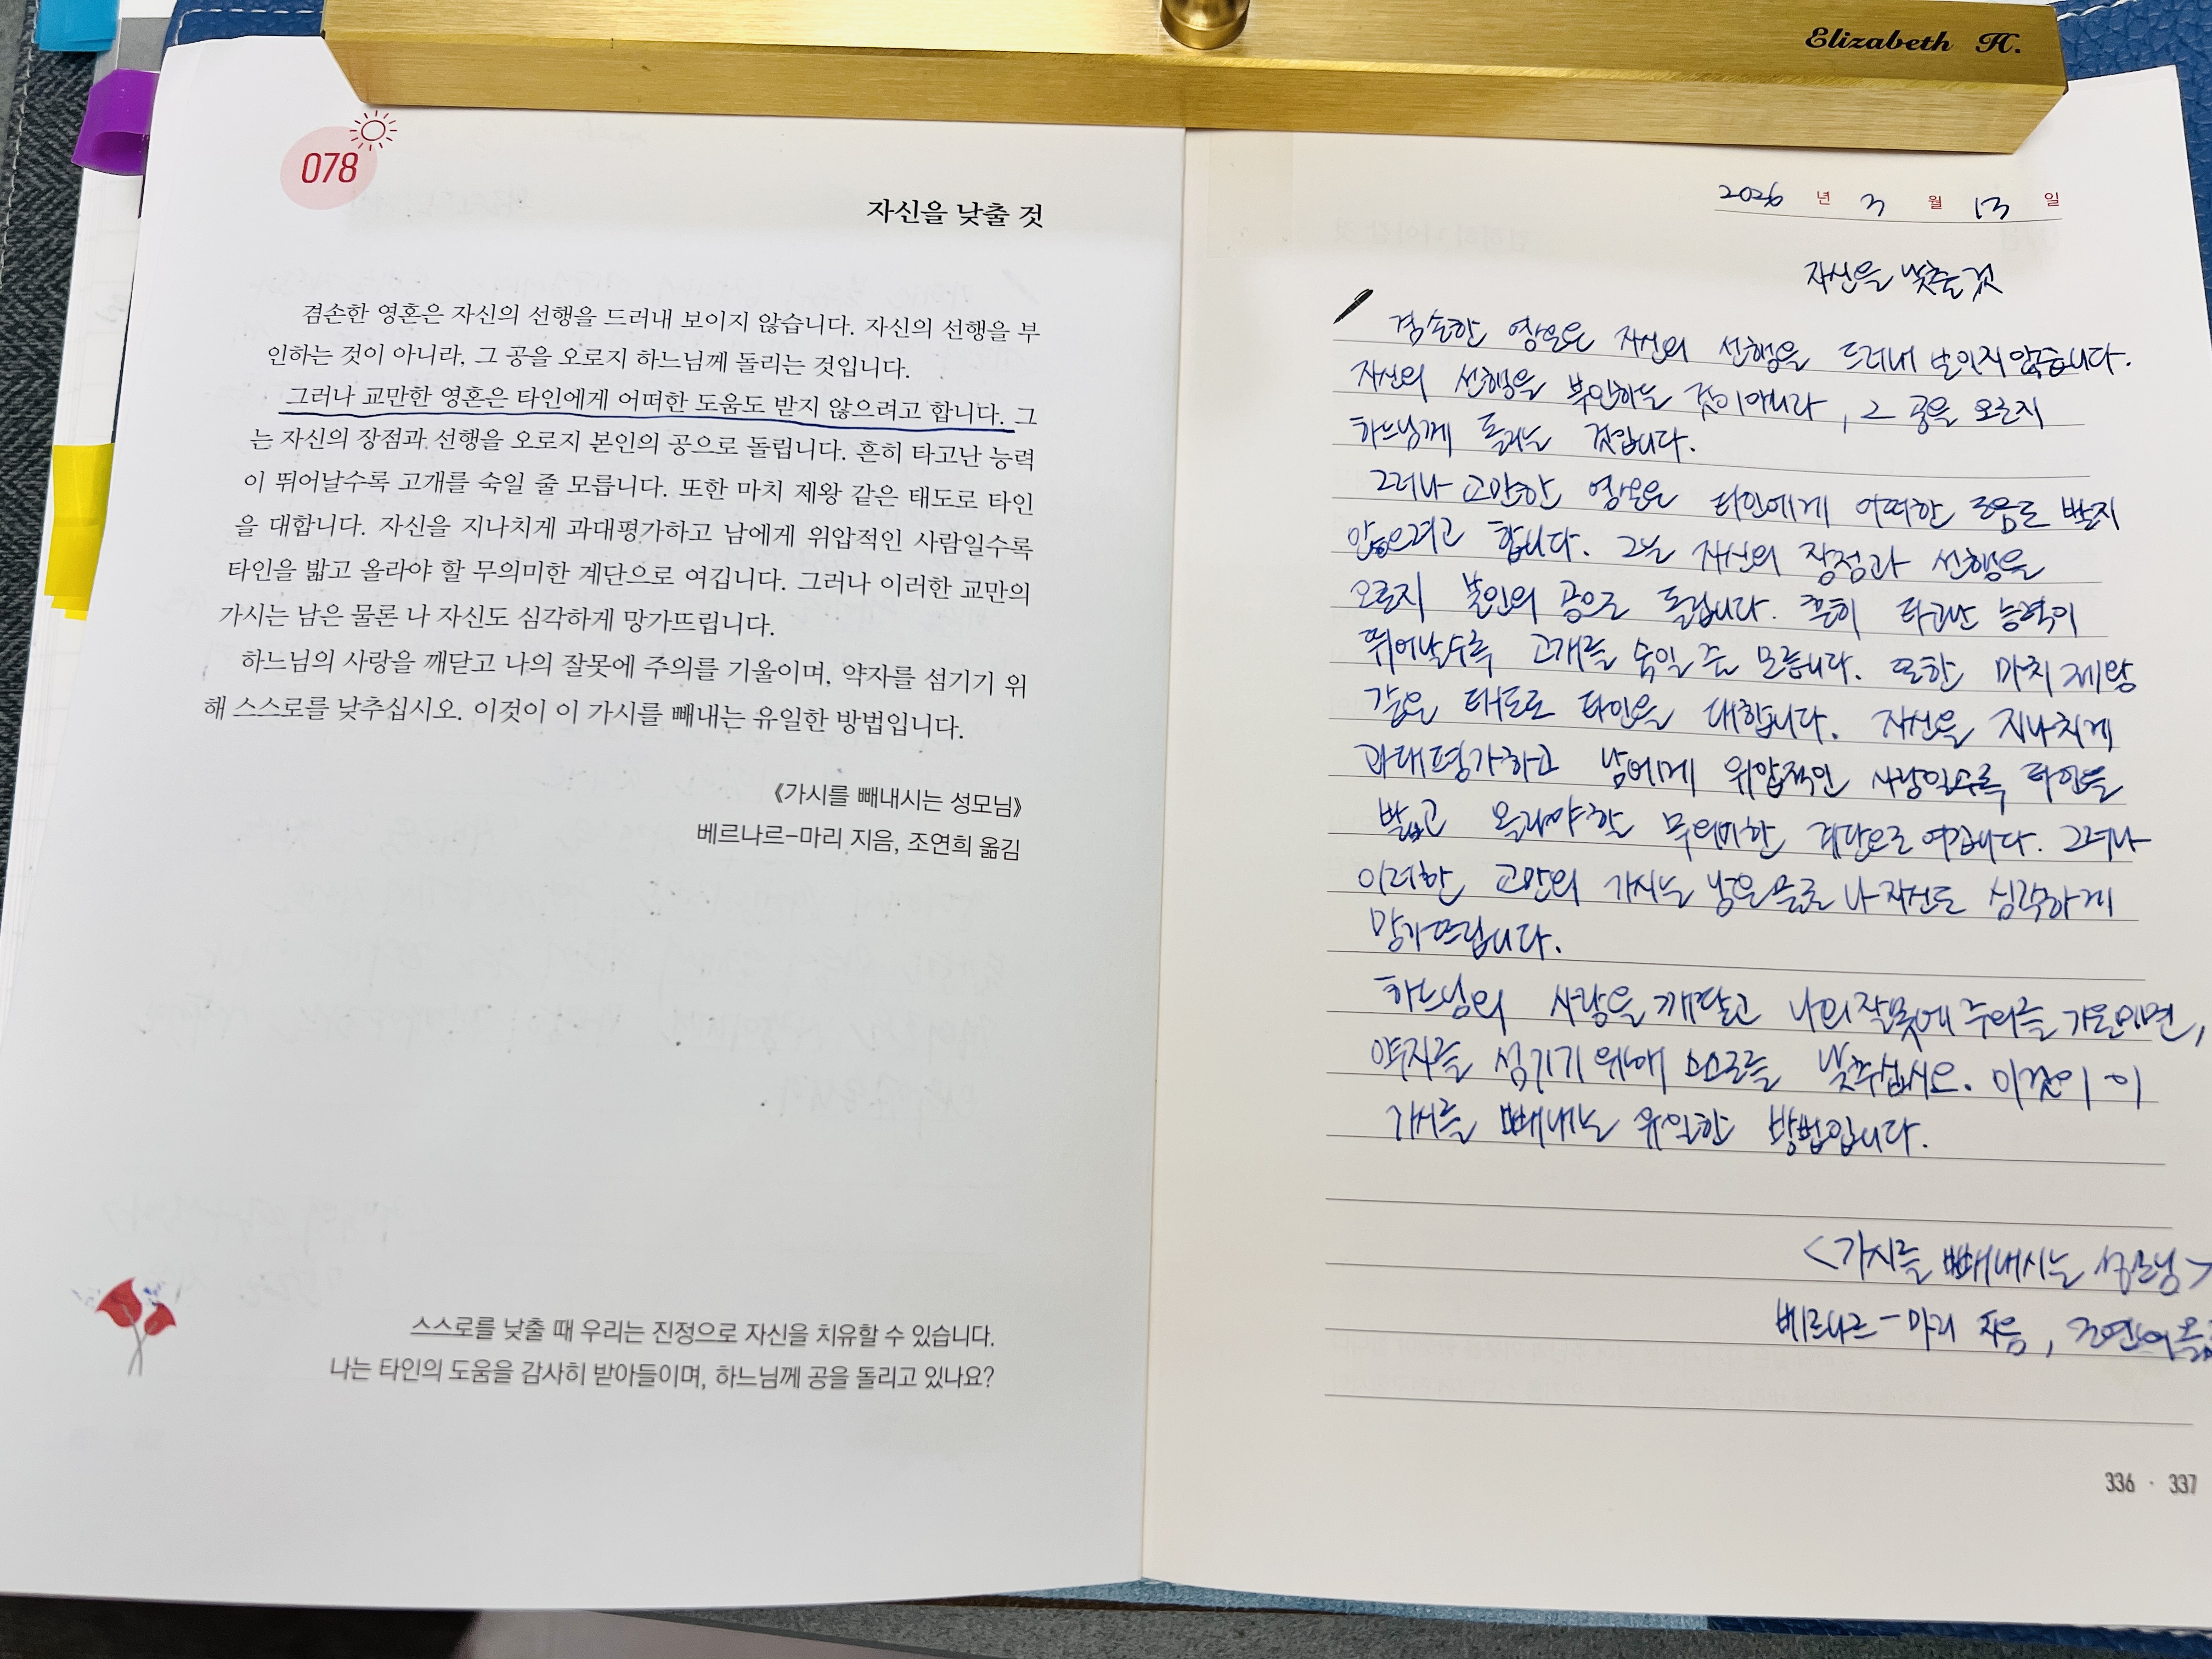 Elizabeth H.
078
자신을 낮출 것
겸손한 영혼은 자신의 선행을 드러내 보이지 않습니다. 자신의 선행을 부
인하는 것이 아니라, 그 공을 오로지 하느님께 돌리는 것입니다.
그러나 교만한 영혼은 타인에게 어떠한 도움도 받지 않으려고 합니다. 그
는 자신의 장점과 선행을 오로지 본인의 공으로 돌립니다. 흔히 타고난 능력
이 뛰어날수록 고개를 숙일 줄 모릅니다. 또한 마치 제왕 같은 태도로 타인
을 대합니다. 자신을 지나치게 과대평가하고 남에게 위압적인 사람일수록
타인을 밟고 올라야 할 무의미한 계단으로 여깁니다. 그러나 이러한 교만의
가시는 남은 물론 나 자신도 심각하게 망가뜨립니다.
하느님의 사랑을 깨닫고 나의 잘못에 주의를 기울이며, 약자를 섬기기 위
해 스스로를 낮추십시오. 이것이 이 가시를 빼내는 유일한 방법입니다.
《가시를 빼내시는 성모님》
베르나르-마리 지음, 조연희 옮김
스스로를 낮출 때 우리는 진정으로 자신을 치유할 수 있습니다.
나는 타인의 도움을 감사히 받아들이며, 하느님께 공을 돌리고 있나요?
2026 년 3 월 13 일
자신을 낮출 것
겸손한 영혼은 자신의 선행을 드러내 보이지 않습니다.
자신의 선행을 부인하는 것이 아니라, 그 공을 오로지
하느님께 돌리는 것입니다.
그러나 교만한 영혼은 타인에게 어떠한 도움도 받지
않으려고 합니다. 그는 자신의 장점과 선행을
오로지 본인의 공으로 돌립니다. 흔히 타고난 능력이
뛰어날수록 고개를 숙일 줄 모릅니다. 또한 마치 제왕
같은 태도로 타인을 대합니다. 자신을 지나치게
과대평가하고 남에게 위압적인 사람일수록 타인을
밟고 올라야 할 무의미한 계단으로 여깁니다. 그러나
이러한 교만의 가시는 남은 물론 나 자신도 심각하게
망가뜨립니다.
하느님의 사랑을 깨닫고 나의 잘못에 주의를 기울이며,
약자를 섬기기 위해 스스로를 낮추십시오. 이것이 이
가시를 빼내는 유일한 방법입니다.
<가시를 빼내시는 성모님>
베르나르-마리 지음, 조연희 옮김
336 · 337